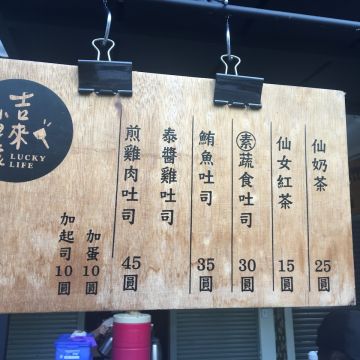 仙奶茶 25圓
仙女紅茶 15圓
素蔬食吐司 30圓
鮪魚吐司 35圓
泰醬雞吐司
煎雞肉吐司 45圓
加蛋10圓
加起司10圓
吉來
LUCKY
LIFE